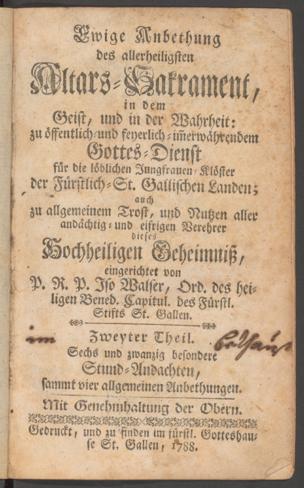 Ewige Anbethung
des allerheiligsten
Altars-Sakrament,
in dem
Geist, und in der Wahrheit:
zu öffentlich-und feyerlich-im̃erwährendem
Gottes-Dienst
für die löblichen Jungfrauen-Klöster
der Fürstlich-St. Gallischen Landen;
auch
zu allgemeinem Trost, und Nutzen aller
andächtig- und eifrigen Verehrer
dieses
Hochheiligen Geheimniß,
eingerichtet von
P. R. P. Iso Walser, Ord. des hei-
ligen Bened. Capitul. des Fürstl.
Stifts St. Gallen.
Zweyter Theil.
im
Sechs und zwanzig besondere
Stund-Andachten,
sammt vier allgemeinen Anbethungen.
Mit Genehmhaltung der Obern.
Gedruckt, und zu finden im fürstl. Gotteshau-
se St. Gallen, 1788.